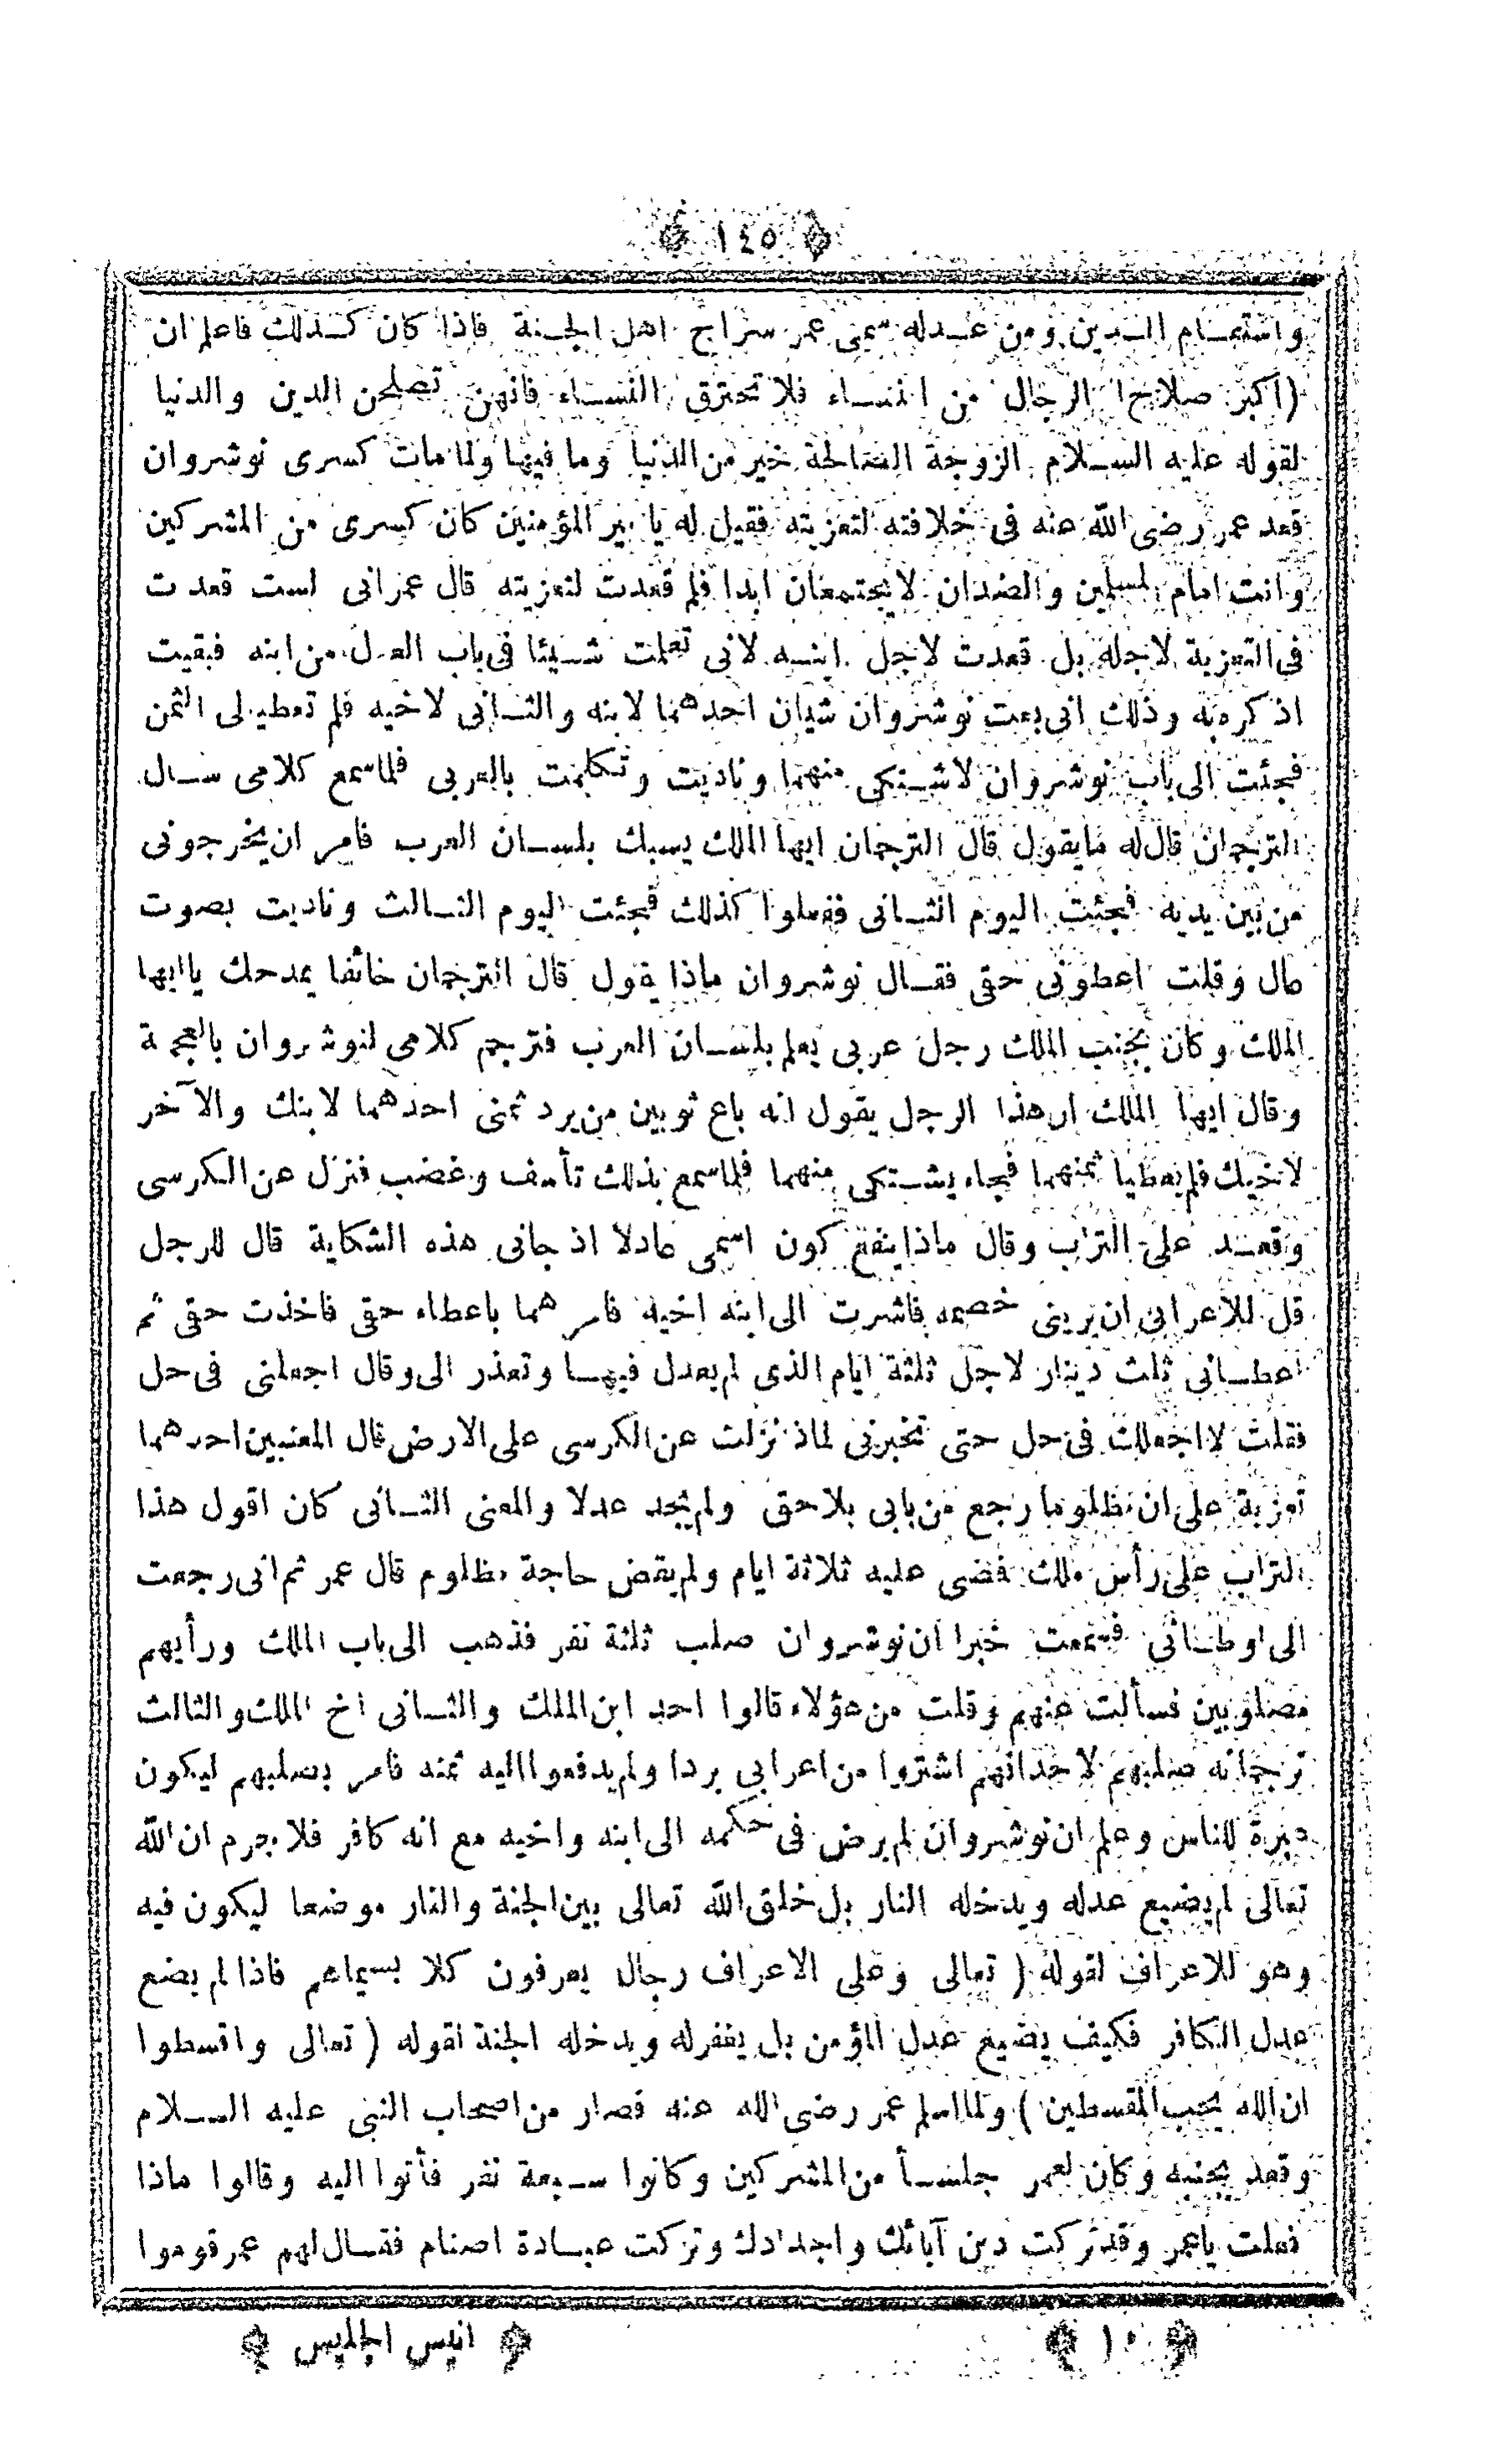 ١٤٥
واستمام الدين ومن عدله سمى عمر سراج اهل الجنة فاذا كان كذلك فاعلم ان
(اكبر صلاح الرجال من النساء فلا تحترق النساء فانهن تصلحن الدين والدنيا
لقوله عليه السلام الزوجة الصالحة خير من الدنيا وما فيها ولما مات كسرى نوشروان
قعد عمر رضى الله عنه فى خلافته لتعزيته فقيل له يا امير المؤمنين كان كسرى من المشركين
وانت امام المسلمين والضدان لا يجتمعان ابدا فلم قعدت لتعزيته قال عمر انى لست قعدت
فى التعزية لاجله بل قعدت لاجل ابنه لانى تعلمت شيئا فى باب العدل من ابنه فبقيت
اذكره به وذلك انى بعت نوشروان شيان احدهما لابنه والثانى لاخيه فلم تعطيه لى الثمن
فجئت الى باب نوشروان لاشتكى منهما وناديت وتكلمت بالعربى فلما سمع كلامى سال
الترجمان قال له ما يقول قال الترجمان ايها الملك يسبك بلسان العرب فامر ان يخرجونى
من بين يديه فجئت اليوم الثانى ففعلوا كذلك فجئت اليوم الثالث وناديت بصوت
عال وقلت اعطونى حقى فقال نوشروان ماذا يقول قال الترجمان خائفا يمدحك يا ايها
الملك وكان بجنب الملك رجل عربى يعلم بلسان العرب فترجم كلامى لنوشروان بالعجمة
وقال ايها الملك ان هذا الرجل يقول انه باع ثوبين من برد ثمنى احدهما لابنك والآخر
لاخيك فلم يعطيا ثمنهما فجاء يشتكى منهما فلما سمع بذلك تأسف وغضب فنزل عن الكرسى
وقعد على التراب وقال ماذا ينفع كون اسمى عادلا اذ جانى هذه الشكاية قال للرجل
قل للاعرابى ان يرينى خصمه فاشرت الى ابنه اخيه فامر هما باعطاء حقى فاخذت حقى ثم
اعطانى ثلث دينار لاجل ثلثة ايام الذى لم يعدل فيها وتعذر الى وقال اجعلنى فى حل
فقلت لا اجعلك فى حل حتى تخبرنى لماذ نزلت عن الكرسى على الارض قال المعنيين احدهما
تعزية على ان مظلوما رجع من بابى بلاحق ولم يجد عدلا والمعنى الثانى كان اقول هذا
التراب على رأس ملك فمضى عليه ثلاثة ايام ولم يقض حاجة مظلوم قال عمر ثم انى رجعت
الى اوطنائى فسمعت خبرا ان نوشروان صلب ثلثة نفر فذهب الى باب الملك ورأيهم
مصلوبين فسألت عنهم وقلت من هؤلاء قالوا احد ابن الملك والثانى اخ الملك والثالث
ترجمانه صلبهم لاخذ انهم اشتروا من اعرابى بردا ولم يدفعوا اليه ثمنه فامر بصلبهم ليكون
عبرة للناس وعلم ان نوشروان لم يرض فى حكمه الى ابنه واخيه مع انه كافر فلا جرم ان الله
تعالى لم يضيع عدله ويدخله النار بل خلق الله تعالى بين الجنة والنار موضعا ليكون فيه
وهو للاعراف لقوله ( تعالى وعلى الاعراف رجال يعرفون كلا بسيماهم فاذا لم يضع
عدل الكافر فكيف يضيع عدل المؤمن بل يغفر له ويدخله الجنة لقوله ( تعالى واقسطوا
ان الله يحب المقسطين ) ولما اسلم عمر رضى الله عنه فصار من اصحاب النبى عليه السلام
وقعد بجنبه وكان لعمر جلسأ من المشركين وكانوا سبعة نفر فأتوا اليه وقالوا ماذا
فعلت يا عمر وقد تركت دين آبائك واجدادك وتركت عبادة اصنام فقال لهم عمر قوموا
١٠ انيس الجليس